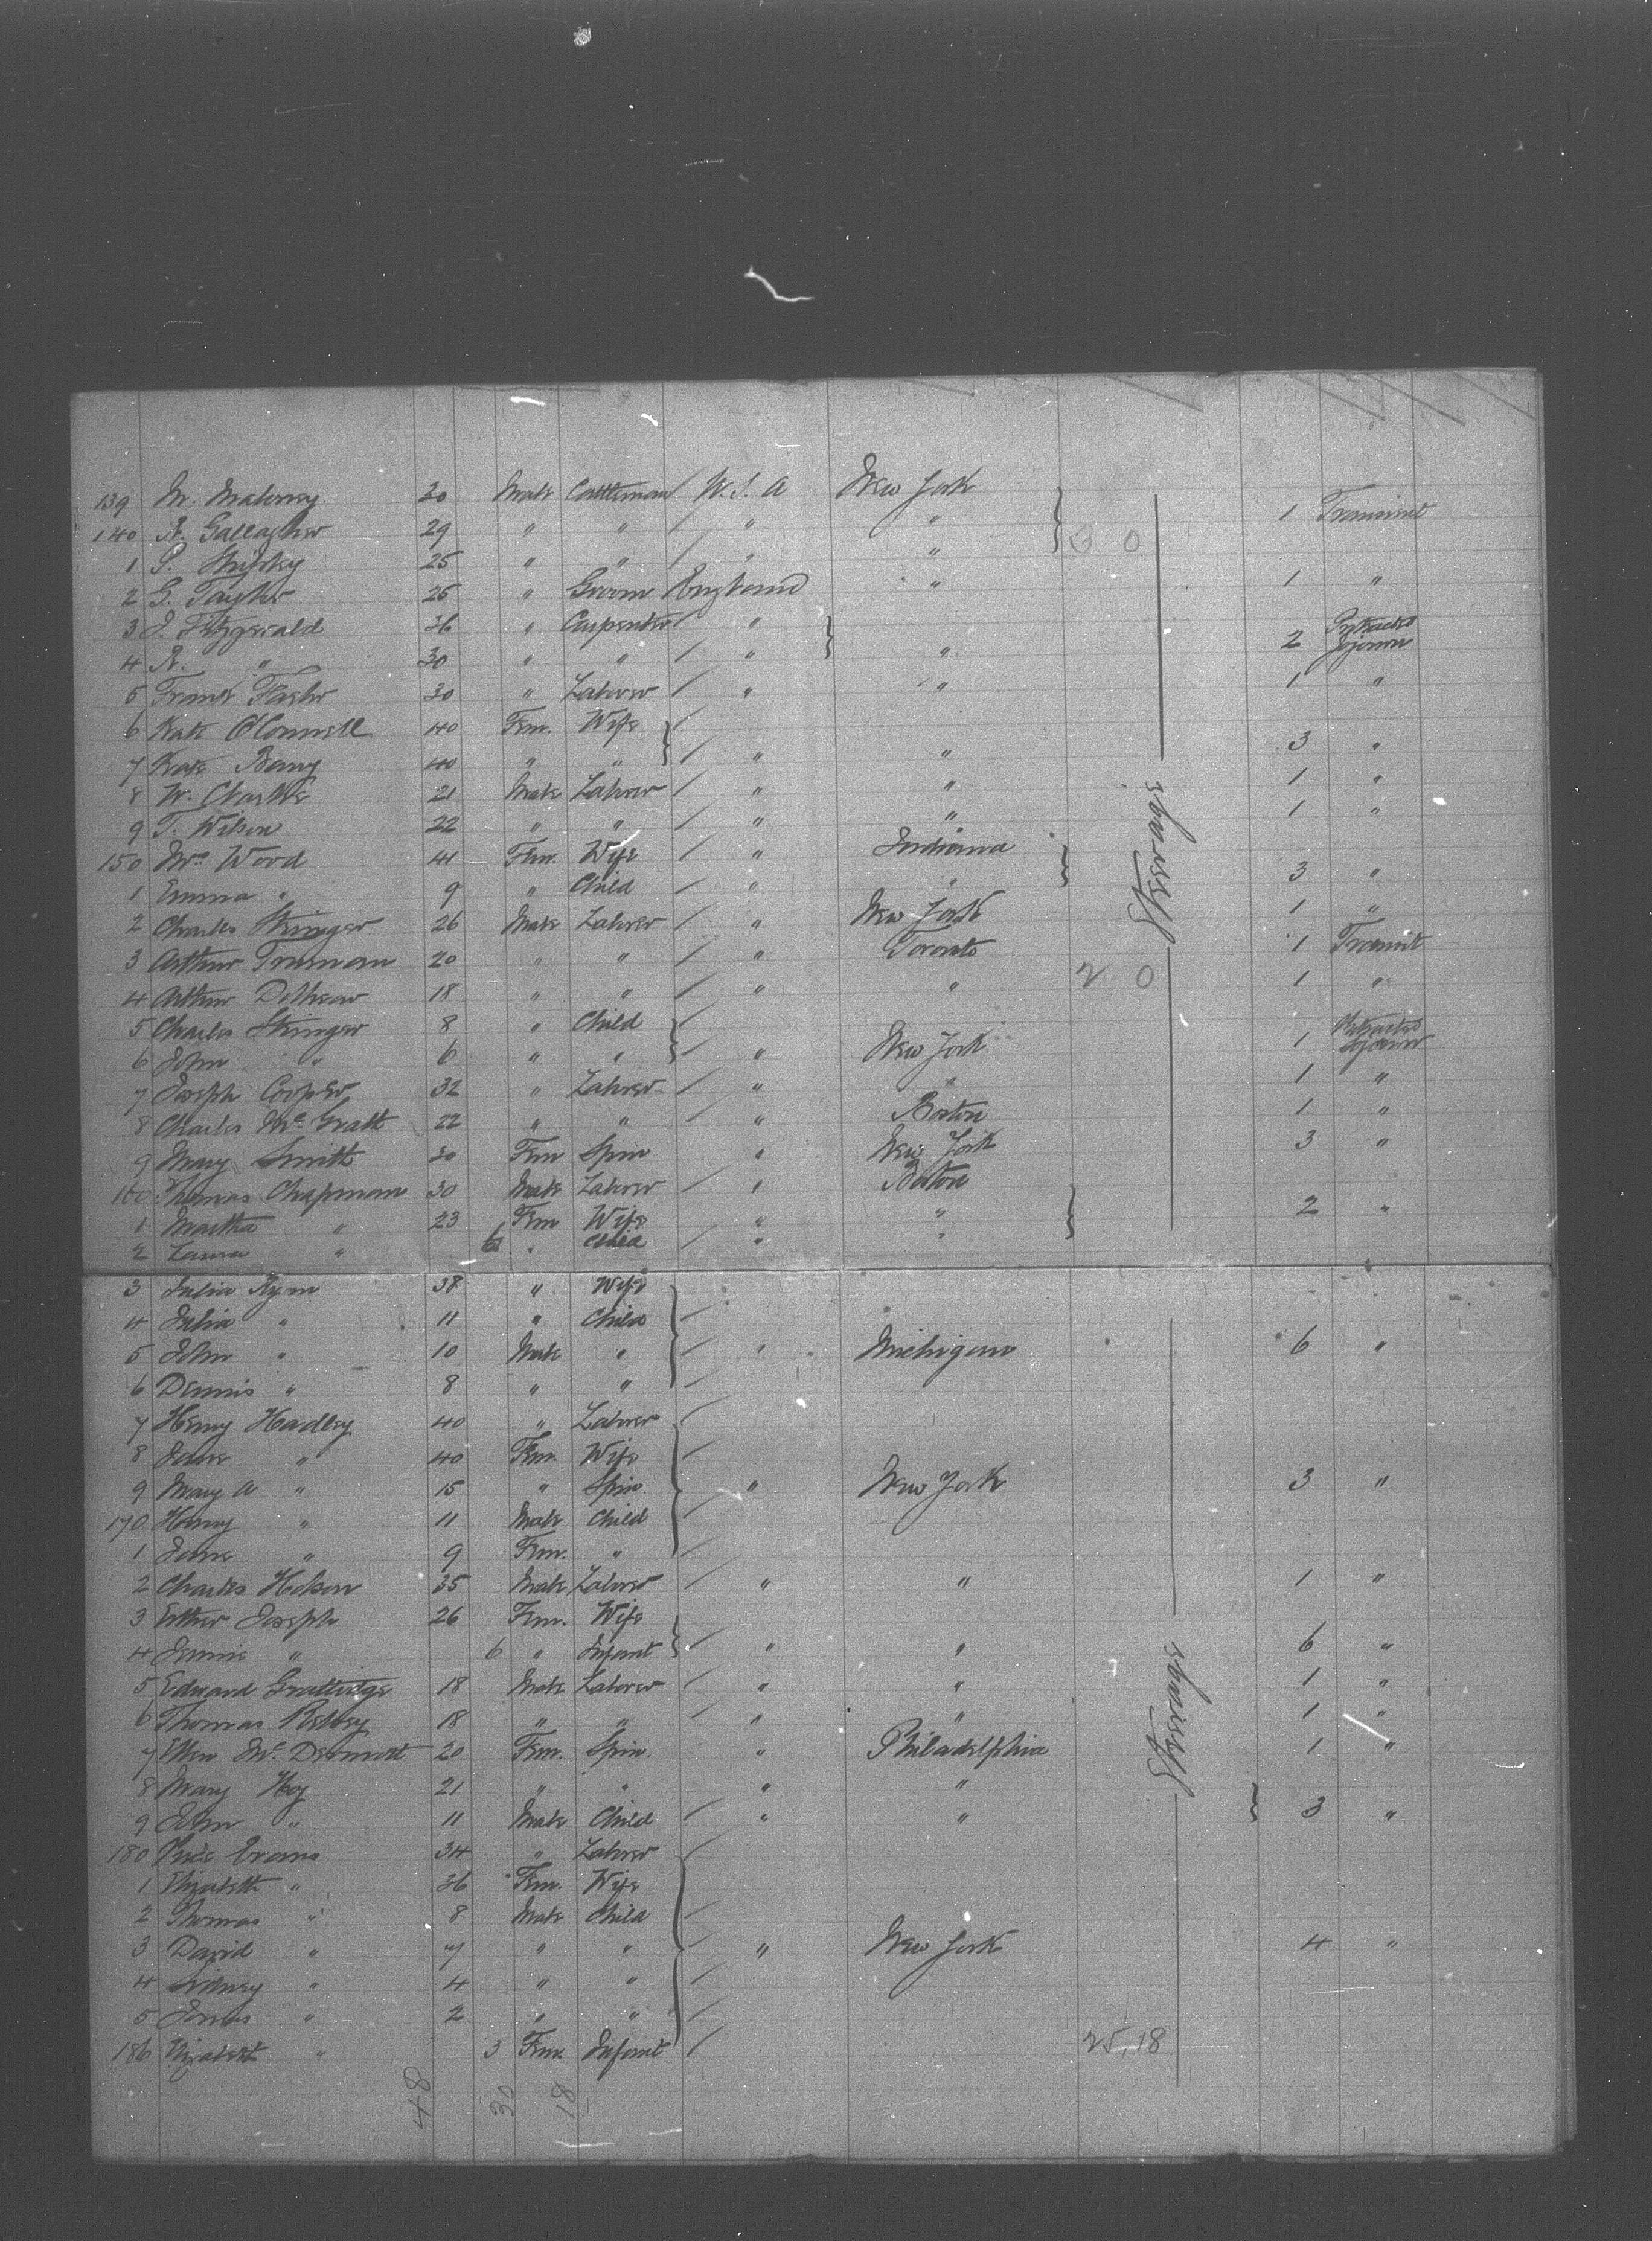 139 M. Mahoney 30 Male Cattleman / U. S. A New York
140 R. Gallagher 29 " " / " " 1 Transient
1 P. 25 " " / " " 3 0
2 G. Taylor 25 " Groom England " 1 "
3 J. Fitzgerald 36 " Carpenter / " Protracted
4 R. " 30 " " / " " 2 Sojourn
5 Frank 30 " Laborer / " " 1 "
6 Kate O'Connell 40 Fem. Wife /
7 Kate Barry 40 " " / " " 3 "
8 W. Charles 21 Male Laborer / " " 1 "
9 T. Wilson 22 " " / " " 1 "
150 Mrs Wood 41 Fem. Wife / " Indiana
1 Emma " 9 " Child / " " 3 "
2 Charles Stringer 26 Male Laborer / " New York 1 "
3 Arthur Trueman 20 " " / " Toronto 1 Transit
4 Arthur 18 " " / " " 2 0 1 "
5 Charles Stringer 8 " Child / Protracted
6 John " 6 " " / " New York 1 Sojourn
7 Joseph Cooper 32 " Laborer / " " 1 "
8 Charles McGrath 22 " " / " Boston 1 "
9 Mary Smith 30 Fem Spin " New York 3 "
160 Thomas Chapman 30 Male Laborer / " Boston
1 Martha " 23 Fem Wife " " 2 "
2 Laura " 6 " Child / " "
Steerage
3 Julia Ryan 38 " Wife
4 Julia " 11 " Child /
5 John " 10 Male " / " Michigan 6 "
6 Dennis " 8 " " /
7 Henry Hadley 40 " Laborer /
8 Jane " 40 Fem. Wife /
9 Mary A " 15 " Spin. / " New York 3 "
170 Henry " 11 Male Child /
1 Jane " 9 Fem. " /
2 Charles 35 Male Laborer / " " 1 "
3 Esther Joseph 26 Fem. Wife
4 Jennie " 6 " Infant / " " 6 "
5 Edward Grattidge 18 Male Laborer / " " 1 "
6 Thomas 18 " " / " " 1 "
7 Ellen McDermott 20 Fem. Spin. " Philadelphia 1 "
8 Mary Hoy 21 " " " "
9 John " 11 Male Child / " " 3 "
180 Evans 34 " Laborer /
1 Elizabeth " 36 Fem. Wife
2 Thomas " 8 Male Child /
3 David " 7 " " / " New York 4 "
4 Sidney " 4 " " /
5 James " 2 " " /
186 Elizabeth " 3 Fem. Infant / 25,18
Steerage
48 30 18